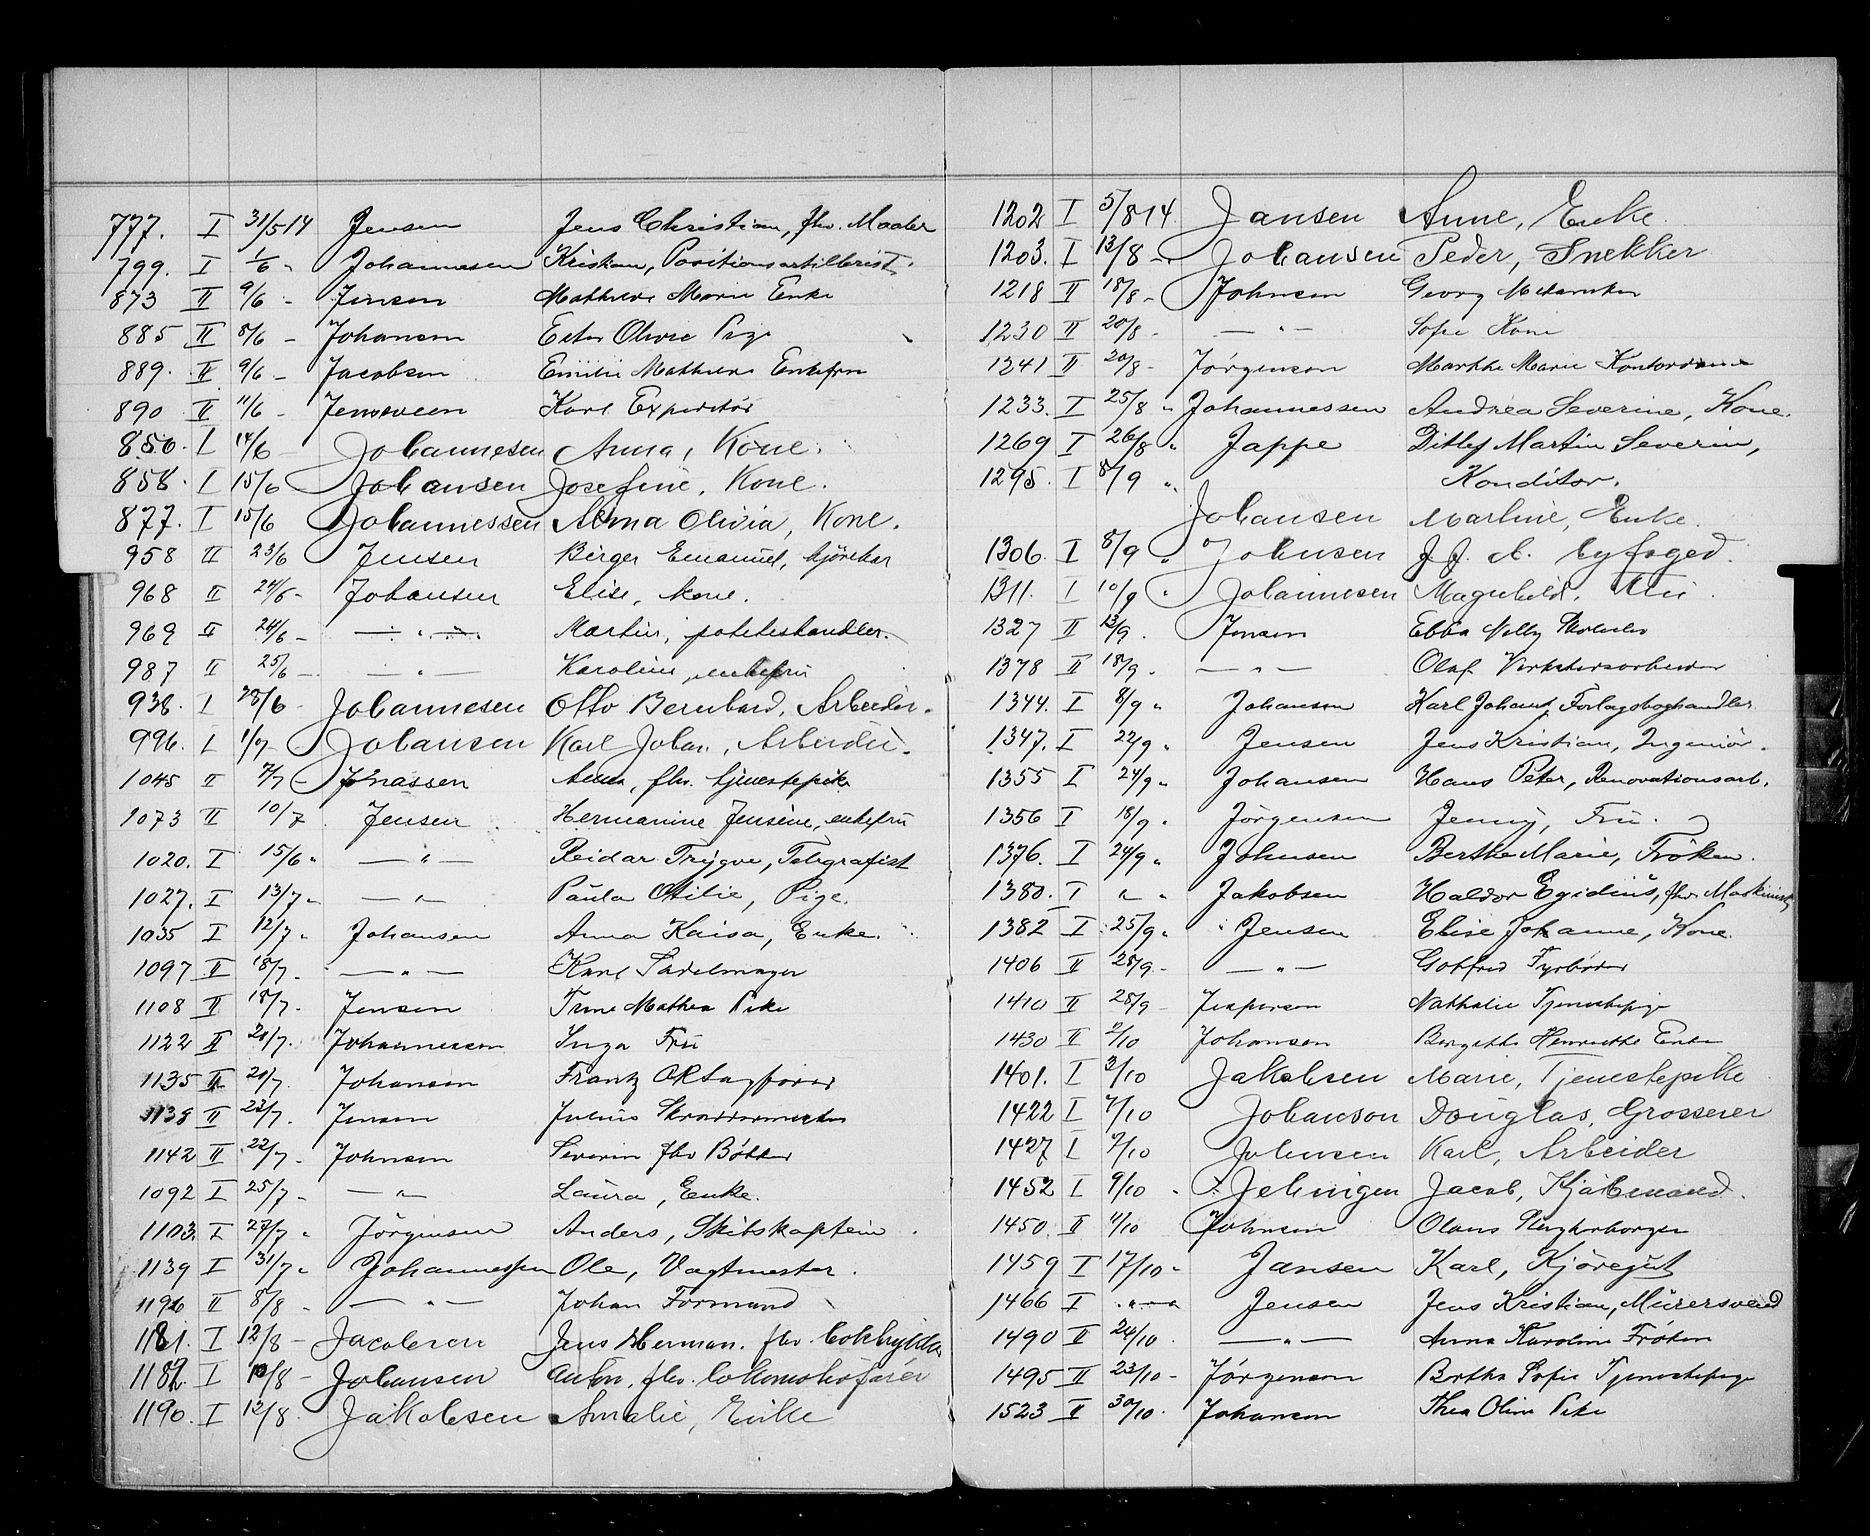 777. I 31/5 14 Jensen Jens Christian, fhv. Maaler
799. I 1/6 - Johannesen Kristian, Positionsartillerist.
873 II 9/6 - Jensen Mathilde Marie Enke
885 II 8/6 - Johansen Ester Olivie Pige
889. II 9/6 - Jacobsen Emilie Mathilde Enkefru
890 II 11/6 - Karl Expeditør
850. I 14/6 Johannesen Anna, Kone.
858. I 15/6 Johansen Josefine, Kone.
877. I 15/6 Johannessen Alma Olivia, Kone.
958 II 23/6 Jensen Birger Emanuel, kjørekar
968 II 24/6 - Johansen Elise, kone.
969 II 24/6 - — " — Martin, poteteshandler.
987 II 25/6 - — " — Karoline, enkefru
938. I 28/6 Johannesen Otto Bernhard, Arbeider.
996. I 1/7 - Johansen Karl Johan, Arbeider.
1045 II 7/7 - Jonassen Anna, fhv. tjenestepike
1073 II 10/7 Jensen Hermanine Jensine, enkefru
1020. I 15/6 " — " — Reidar Trygve, Telegrafist
1027. I 13/7 " — " — Paula Otilie, Pige.
1035 I 12/7 " Johansen Anna Kaisa, Enke.
1097 II 18/7. — " — Karl Sadelmager
1108 II 18/7. Jensen Trine Mathea Pike
1122 II 20/7. Johannessen Inga Fru
1135 II 20/7. Johansen Frantz Oktav
1138 II 23/7. Jensen Julius Skræddermester
1142 II 22/7. Johnsen Severin fhv Bøkker
1092 I 25/7 - — " — Laura, Enke.
1103. I 27/7 " Jörgensen Anders, Skibskaptein.
1139 I 31/7 " Johannessen Ole, Vagtmester.
1196 II 8/8 - — " — Johan Formand
1181. I 12/8 - Jacobsen Jens Herman. fhv.
1182. I 12/8 - Johansen Anton. fhv. lokomotivfører
1190. I 12/8. Jakobsen Amalie, Enke
1202 I 5/8 14. Jansen Anne, Enke.
1203. I 13/8 - Johansen Peder, Snekker
1218 II 18/8 - Johnsen Georg Mekaniker
1230 II 20/8 - — " — Sofie Kone
1241 II 20/8 - Jørgensen Marthe Marie Kontordame
1233. I 25/8 " Johannessen Andrea Severine, Kone.
1269 I 26/8 " Jappe Ditlef Martin Severin,
1295. I 8/9 " Konditor.
Johansen Martine, Enke.
1306. I 8/9 " Johnsen J. J. A. byfoged.
1311. I 10/9 " Johannesen Magnhild,
1327 II 13/9. Jensen Ebba Nelly
1378 II 18/9. — " — Olaf Verkstedsarbeider
1344. I 8/9 " Johansen Karl Johan, Forlagsboghandler
1347. I 22/9 " Jensen Jens Kristian, Ingeniør.
1355 I 24/9 " Johansen Hans Peter, Renovationsarb.
1356 I 18/9 " Jörgensen Jenny, Fru.
1376. I 24/9 " Johnsen Berthe Marie, Frøken.
1380. I " " Jakobsen Haldor Egidius, fhv. Maskinist
1382 I 25/9 " Jensen Elise Johanne, Kone.
1406 II 28/9 - — " — Gotfred Fyrbøder
1410 II 28/9 - Jespersen Nathalie Tjenestepige
1430 II 2/10 Johansen Bergitte Henriette Enke
1401. I 3/10 Jakobsen Marie, Tjenestepike
1422 I 7/10 Johanson Douglas, Grosserer
1427 I 7/10 Johnsen Karl, Arbeider
1452 I 9/10 " Jelingen Jacob, Kjøbmand.
1450. II 11/10 Johnsen Olaus
1459 I 17/10 - Jansen Karl, Kjøregut
1466 I " Jensen Jens Kristian, Mürersvend
1490 II 24/10. — " — Anna Karoline Frøken
1495 II 23/10 - Jørgensen Bertha Sofie Tjenestepige
1523 II 30/10. Johansen Thea Oline Pike